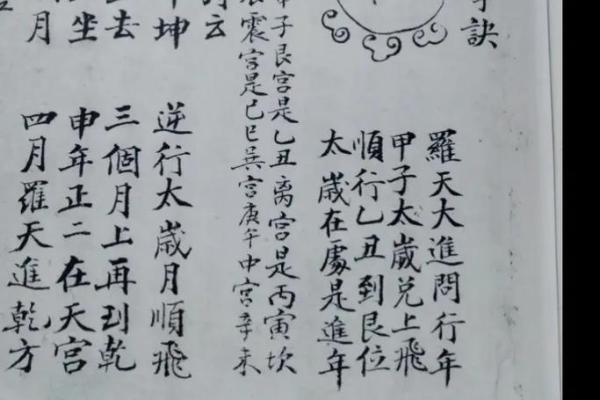 訣
羅天大進問行年
甲子太歲兑上飛
順行乙丑到艮位
太歲在處是進年
子艮宮是乙丑离宮是丙寅坎
震宮是己巳巽宮庚午中宮辛未
云
坤
逆行太歲月順飛
去
三個月上再到乾
坐
申年正二在天宮
月
四月羅天進乾方